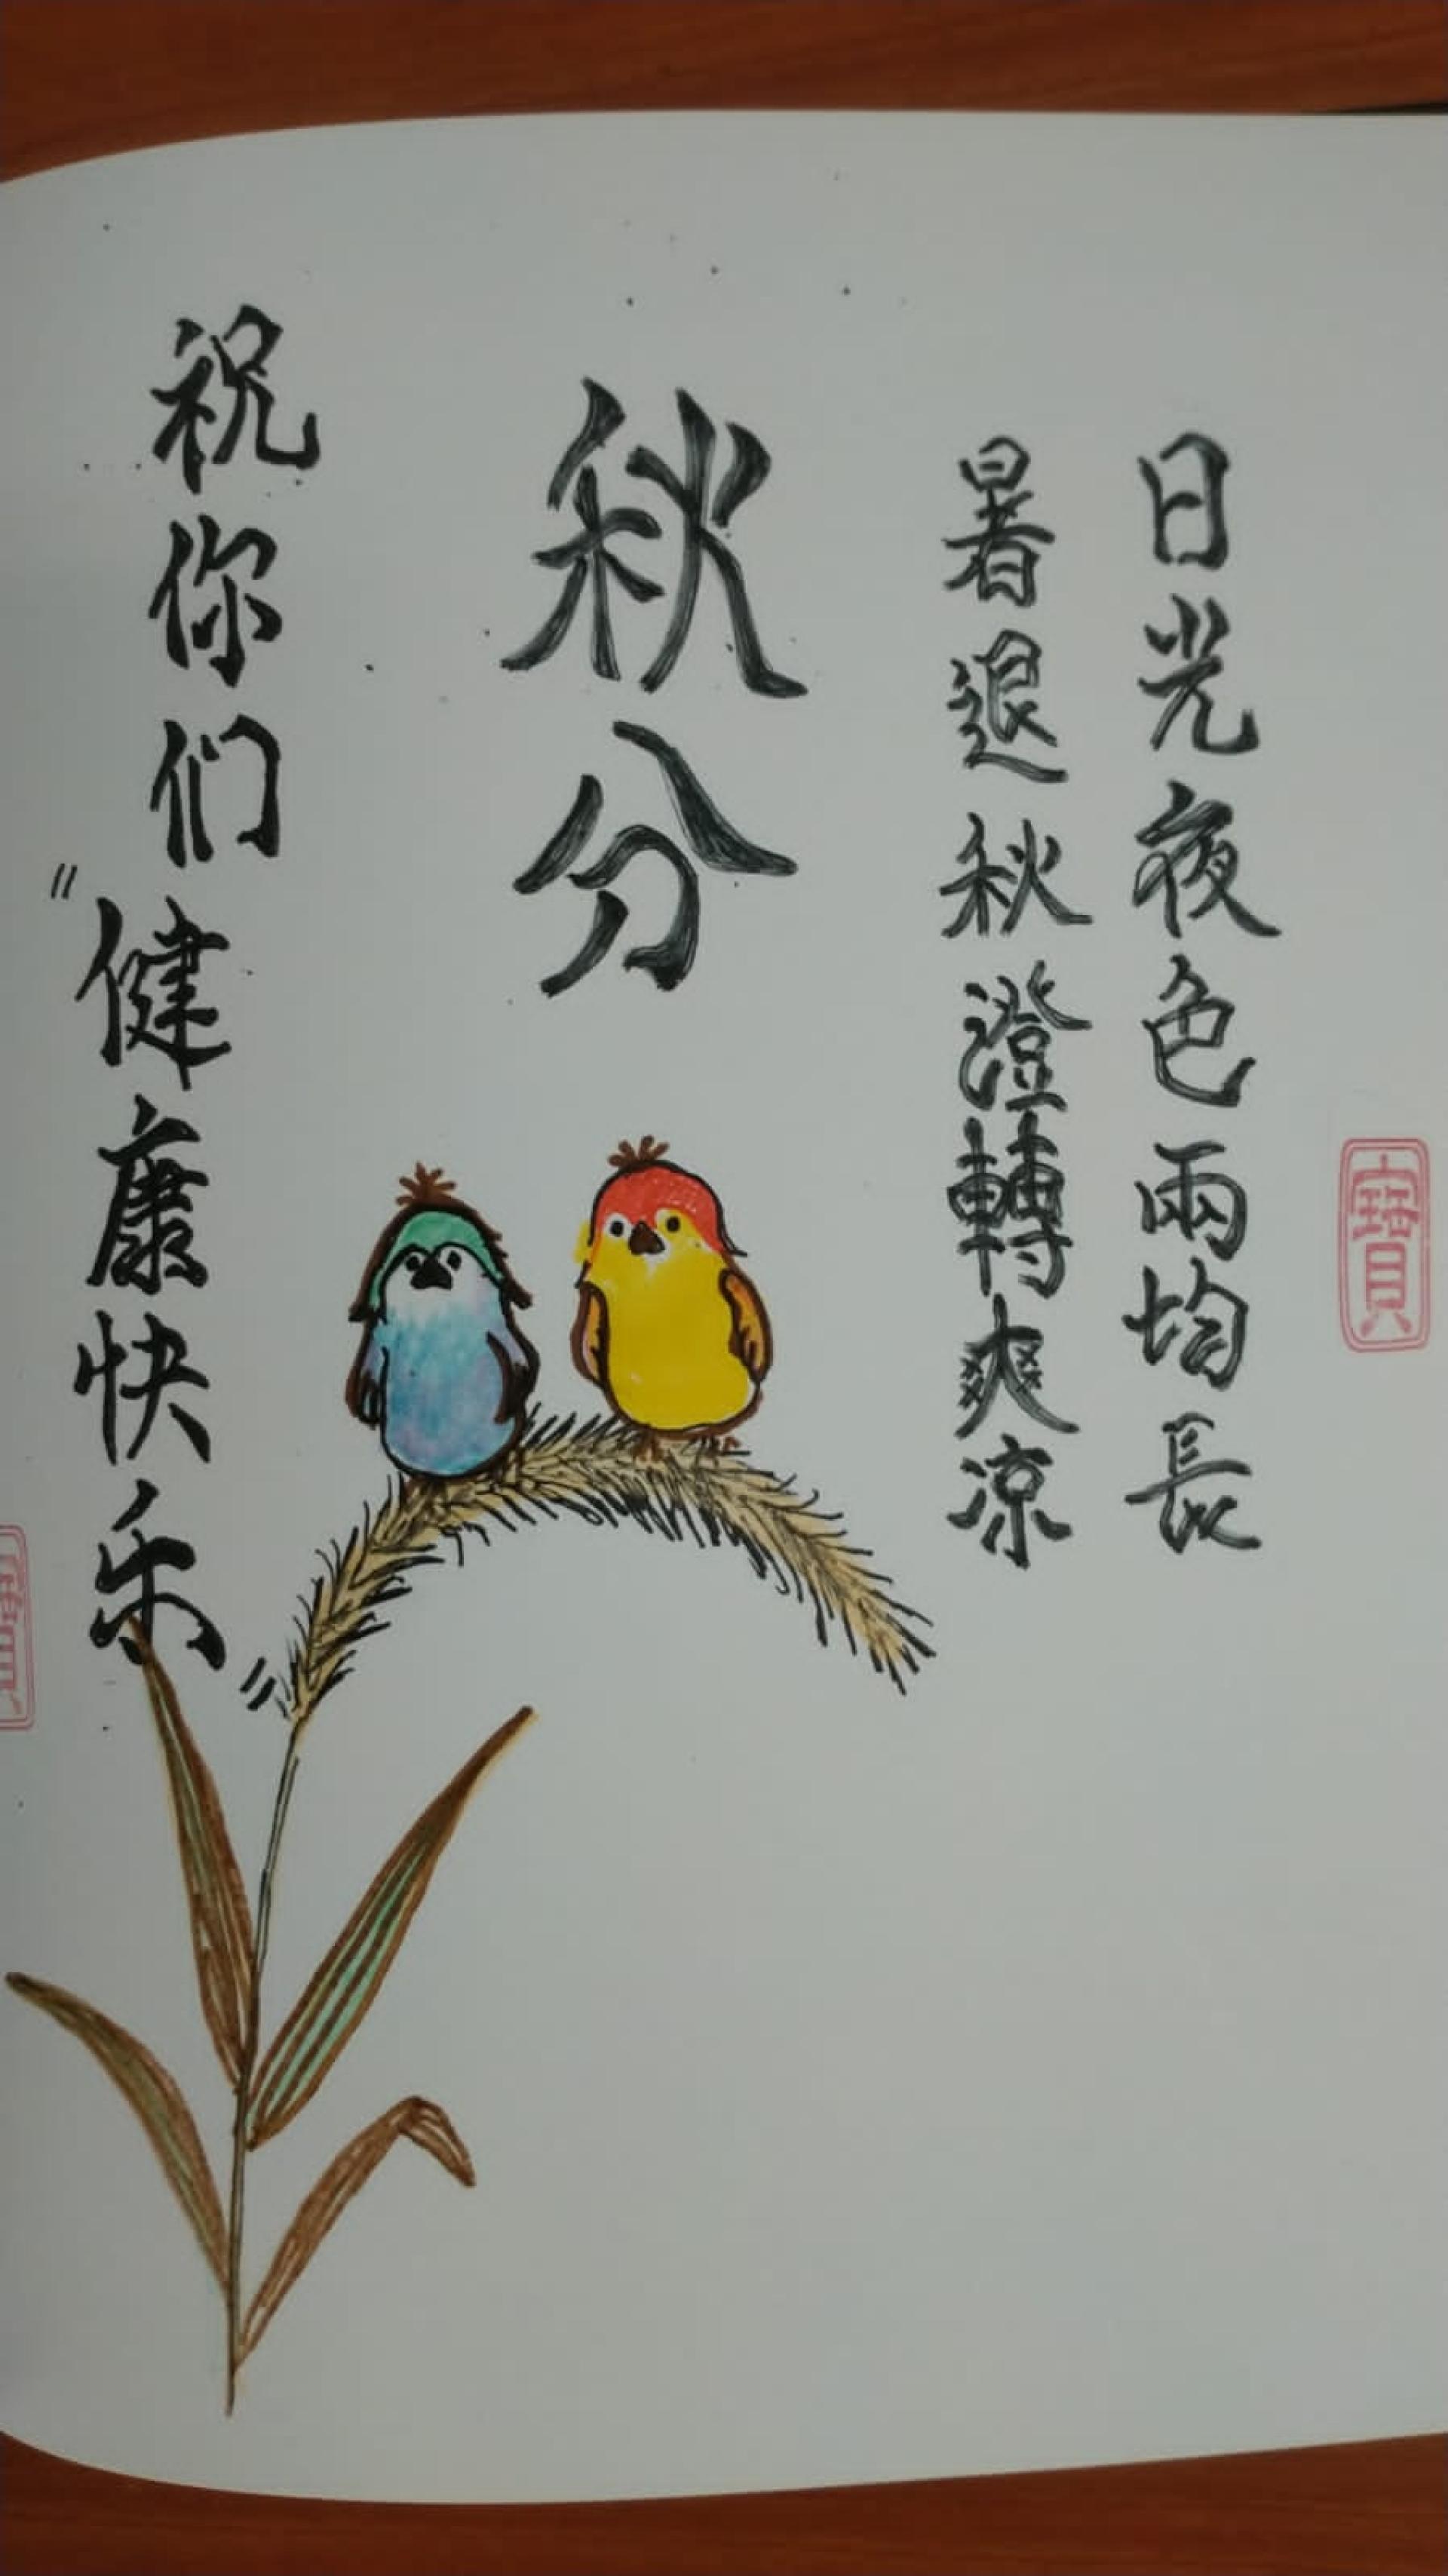 日光夜色兩均長
暑退秋澄轉爽凉
秋分
祝你们
"健康快乐"
寶